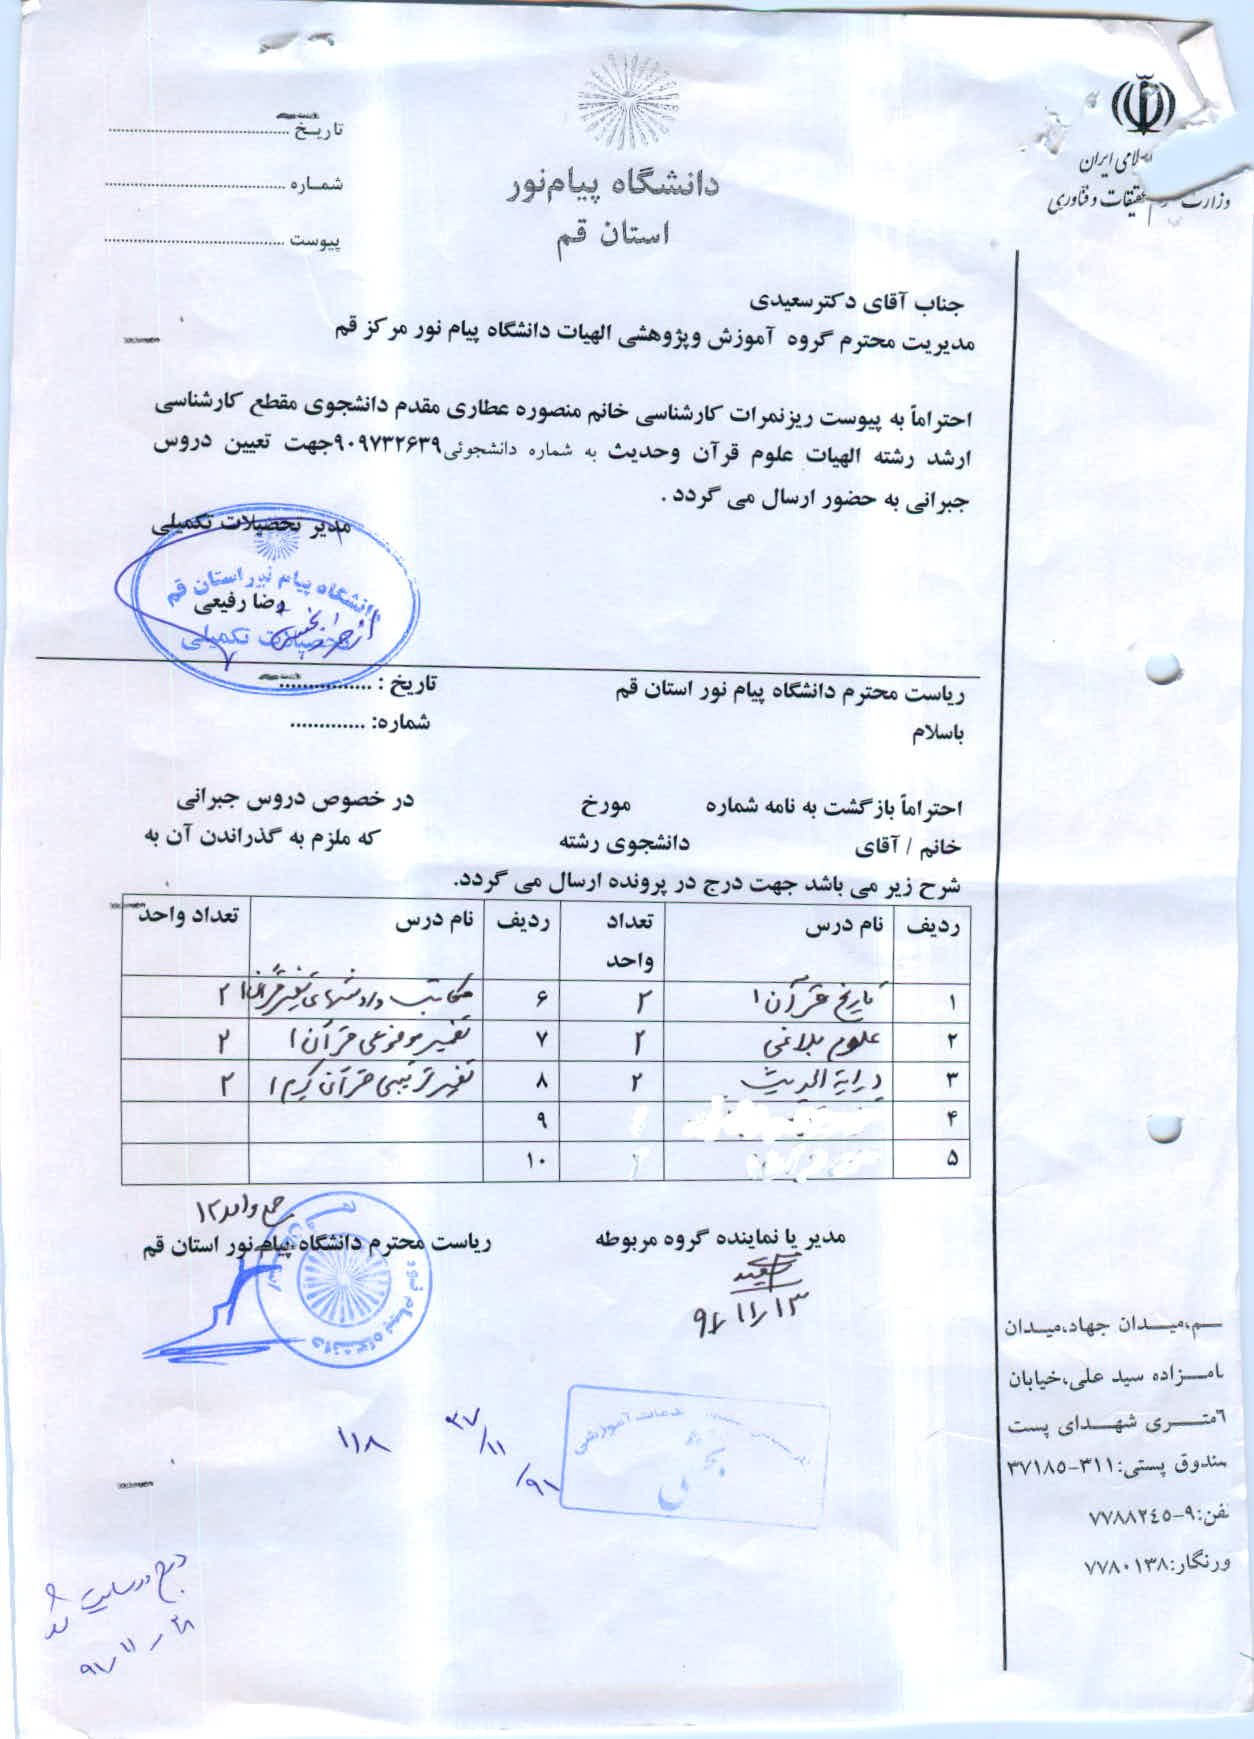 اسلامی ایران
وزارت تحقیقات و فناوری
دانشگاه پیام‌نور
استان قم
تاریخ ........................................
شماره ........................................
پیوست ........................................
جناب آقای دکترسعیدی
مدیریت محترم گروه آموزش وپژوهشی الهیات دانشگاه پیام نور مرکز قم
احتراماً به پیوست ریزنمرات کارشناسی خانم منصوره عطاری مقدم دانشجوی مقطع کارشناسی
ارشد رشته الهیات علوم قرآن وحدیث به شماره دانشجوئی۹۰۹۷۳۲۶۳۹جهت تعیین دروس
جبرانی به حضور ارسال می گردد .
مدیر تحصیلات تکمیلی
دانشگاه پیام نور استان قم
رضا رفیعی
تحصیلات تکمیلی
ریاست محترم دانشگاه پیام نور استان قم
تاریخ : ................
باسلام
شماره: .............
احتراماً بازگشت به نامه شماره مورخ در خصوص دروس جبرانی
خانم / آقای دانشجوی رشته که ملزم به گذراندن آن به
شرح زیر می باشد جهت درج در پرونده ارسال می گردد.
ردیف نام درس تعداد واحد ردیف نام درس تعداد واحد
۱ تاریخ قرآن ۱ ۲ ۶ مکاتب و روشهای تفسیر قرآن ۱ ۲
۲ علوم بلاغی ۲ ۷ تفسیر موضوعی قرآن ۱ ۲
۳ درایة الحدیث ۲ ۸ تفسیر ترتیبی قرآن کریم ۱ ۲
۴ ۹
۵ ۱۰
جمع واحد ۱۲
مدیر یا نماینده گروه مربوطه
ریاست محترم دانشگاه پیام نور استان قم
دانشگاه پیام نور
سعیدی
۹۱/۱۱/۱۳
خدمات آموزشی
۹۱/۱۱/۲۷
۱۱۸
درج در سایت شد
۹۱/۱۱/۲۸
ـم،میدان جهاد،میدان
امـزاده سید علی،خیابان
۶متـری شهـدای پست
صندوق پستی:۳۱۱-۳۷۱۸۵
فن:۹-۷۷۸۸۲٤٥
ورنگار:۷۷۸۰۱۳۸